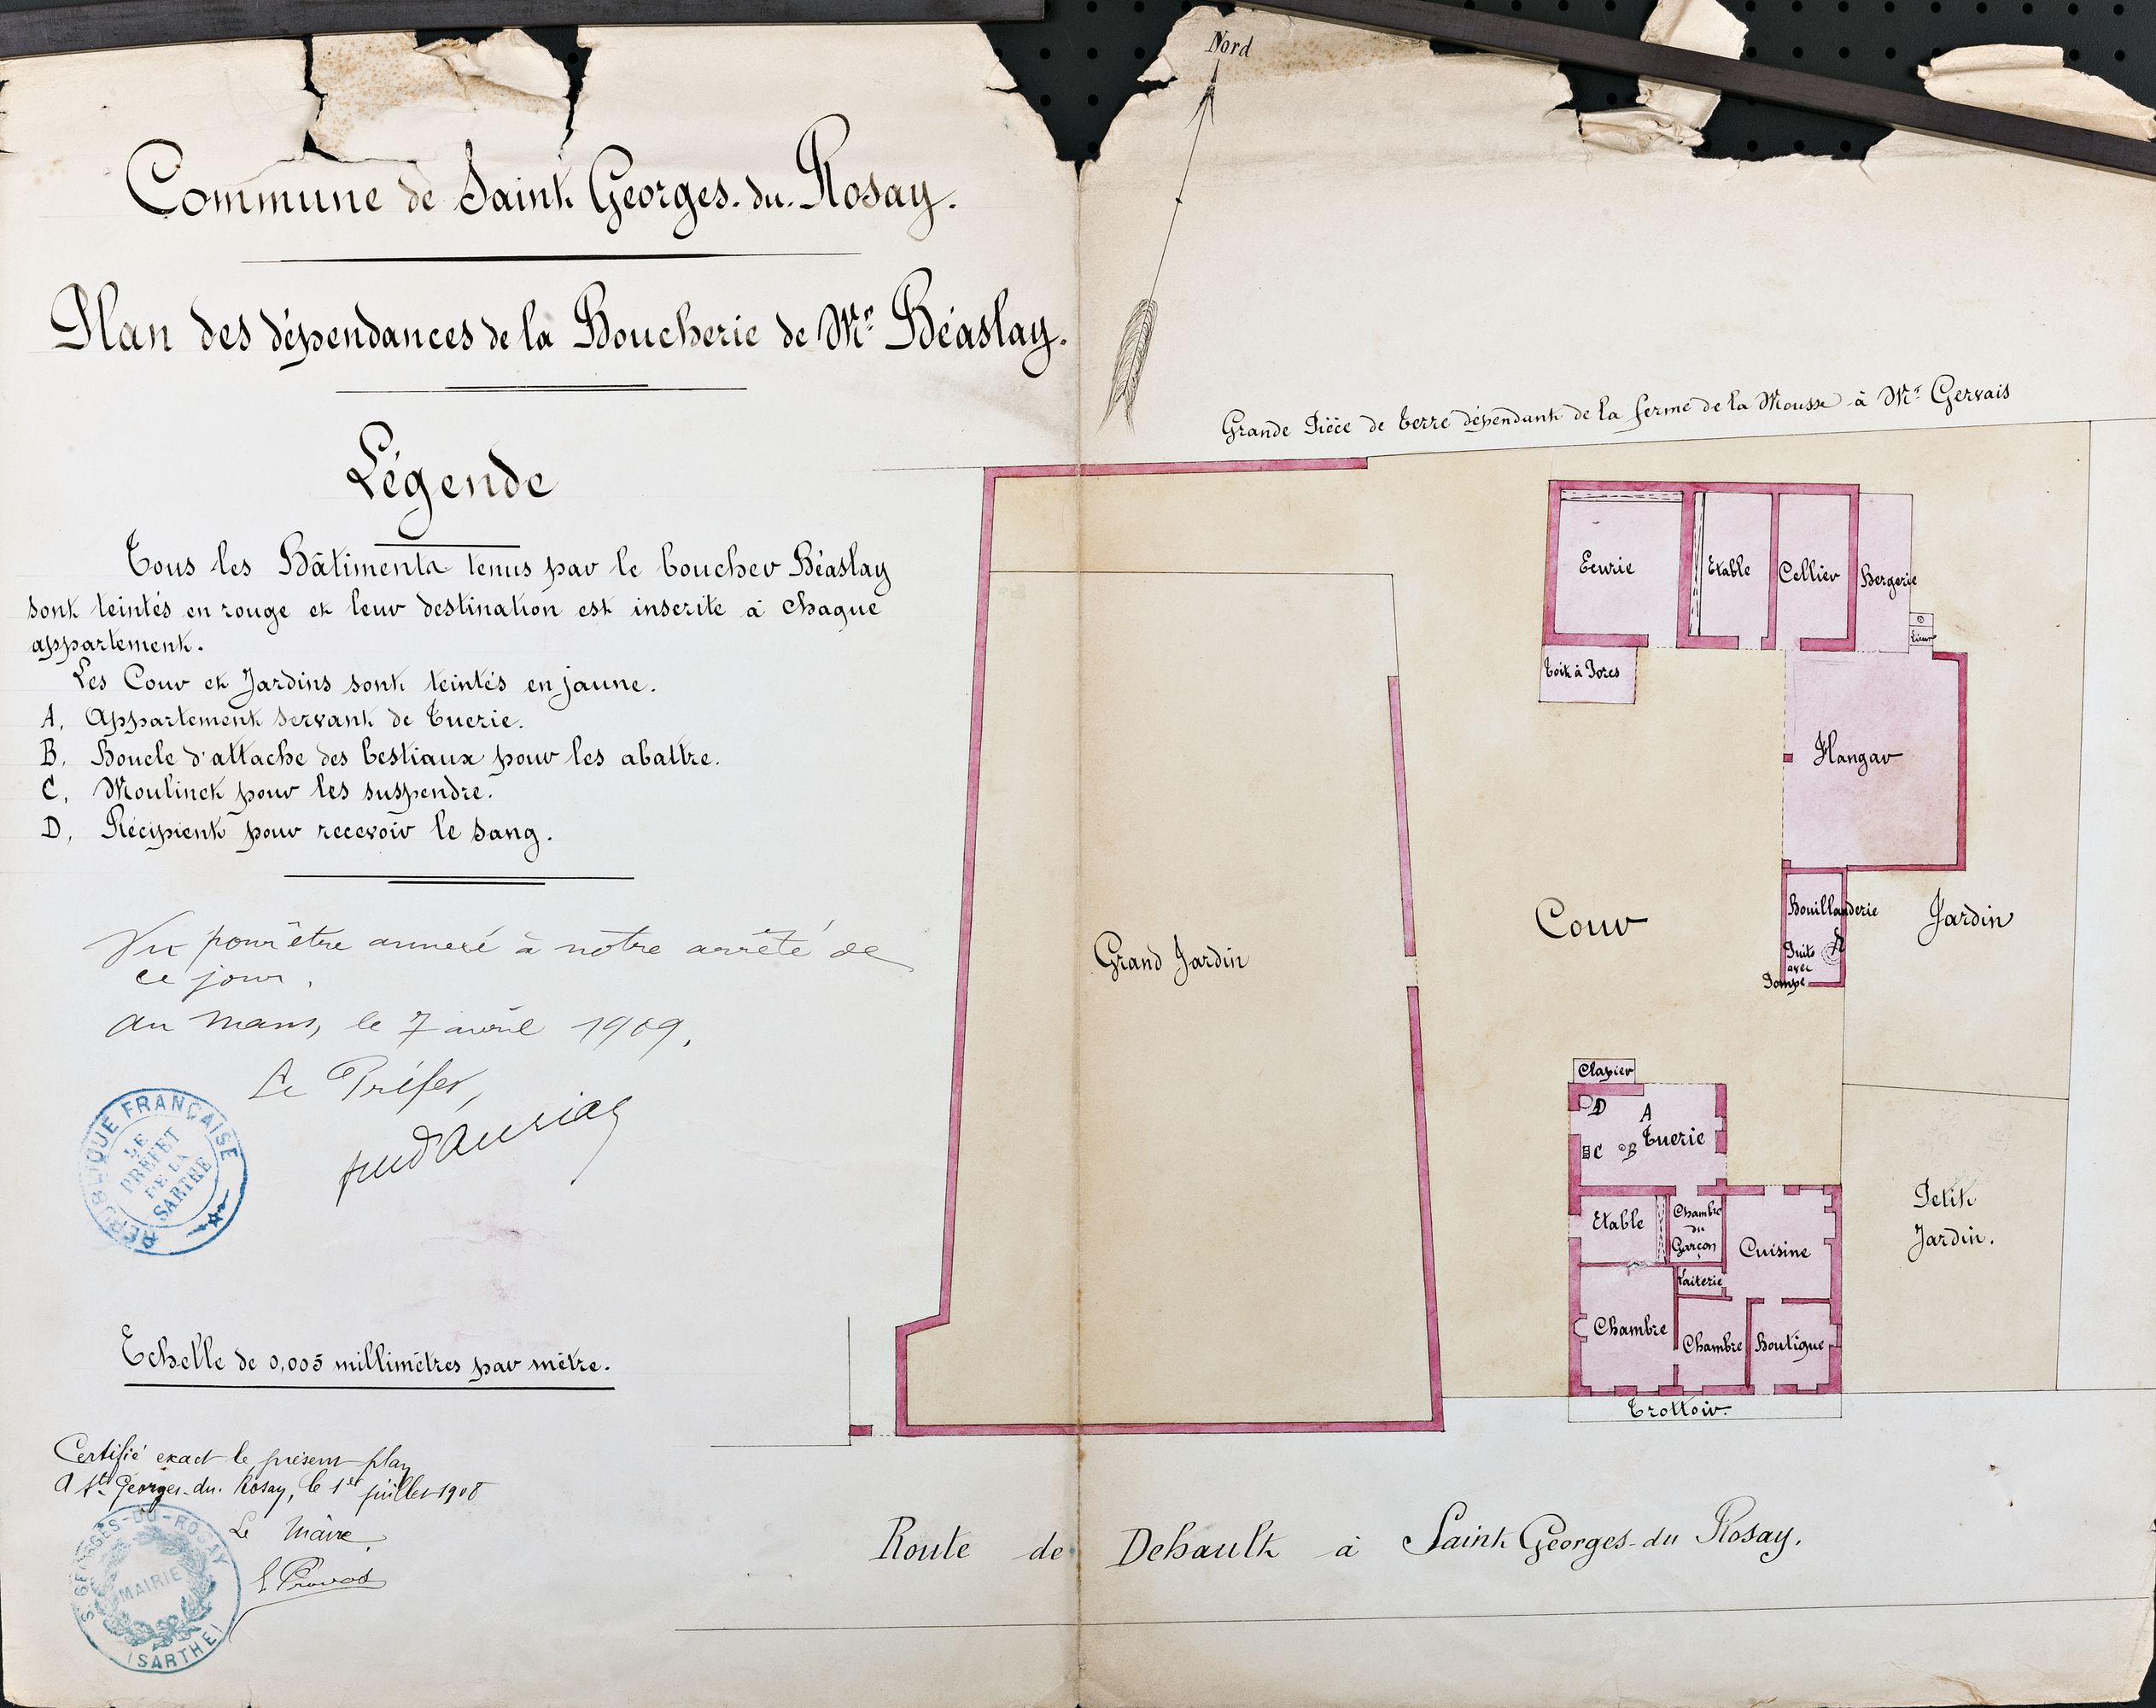 Nord
Commune de Saint Georges-du-Rosay.
Plan des dépendances de la Boucherie de Mr Béaslay.
Légende
Tous les Bâtiments tenus par le boucher Béaslay
sont teintés en rouge et leur destination est inscrite à chaque
appartement.
Les Cour et Jardins sont teintés en jaune.
A, Appartement servant de Tuerie.
B, Boucle d'attache des bestiaux pour les abattre.
C, Moulinet pour les suspendre.
D, Récipient pour recevoir le sang.
Vu pour être annexé à notre arrêté de
ce jour.
Au Mans, le 7 avril 1909.
Le Préfet,
RÉPUBLIQUE FRANÇAISE
LE
PRÉFET
DE LA
SARTHE
Echelle de 0,005 millimètres par mètre.
Certifié exact le présent plan
A St Georges-du-Rosay, le 1er juillet 1908
Le Maire
St GEORGES-DU-ROSAY
MAIRIE
(SARTHE)
Grande Pièce de terre dépendant de la ferme de la Mousse à Mr Gervais
Ecurie
Etable
Cellier
Bergerie
Toit à Porcs
Hangar
Grand Jardin
Cour
Bouillanderie
Puits
avec
Pompe
Jardin
Clapier
D
A
Tuerie
C
B
Etable
Chambre
du
Garçon
Cuisine
Laiterie
Chambre
Chambre
Boutique
Petit
Jardin.
Trottoir.
Route de Dehault à Saint Georges-du Rosay.